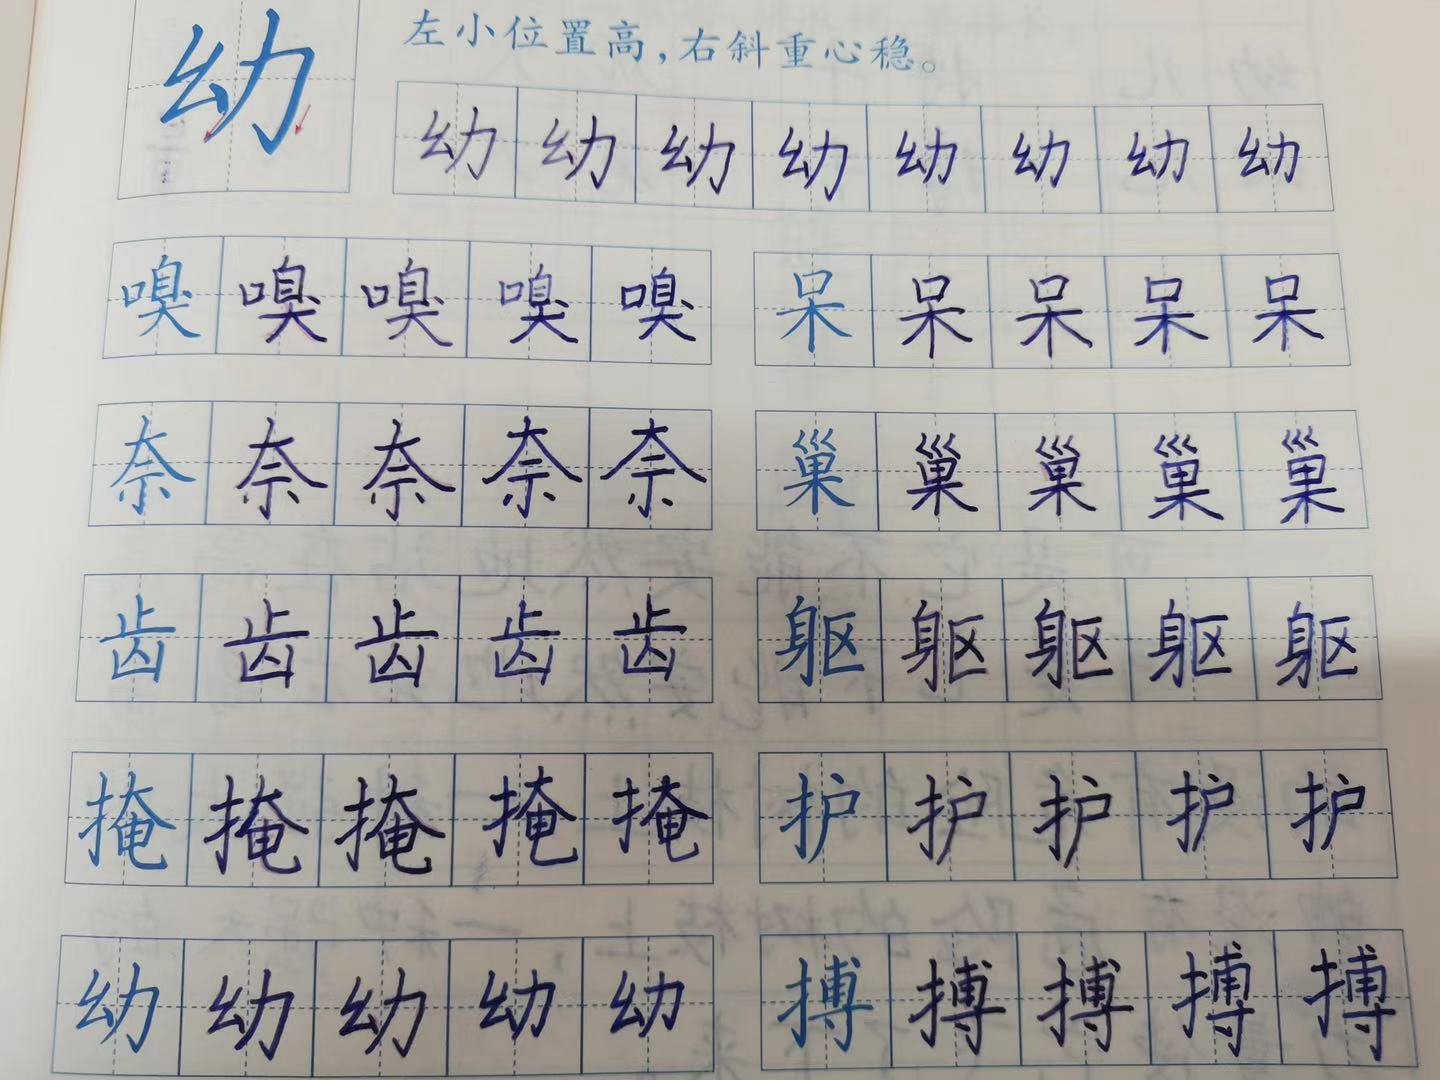 幼 左小位置高，右斜重心稳。
幼 幼 幼 幼 幼 幼 幼 幼
嗅 嗅 嗅 嗅 嗅 呆 呆 呆 呆 呆
奈 奈 奈 奈 奈 巢 巢 巢 巢 巢
齿 齿 齿 齿 齿 躯 躯 躯 躯 躯
掩 掩 掩 掩 掩 护 护 护 护 护
幼 幼 幼 幼 幼 搏 搏 搏 搏 搏